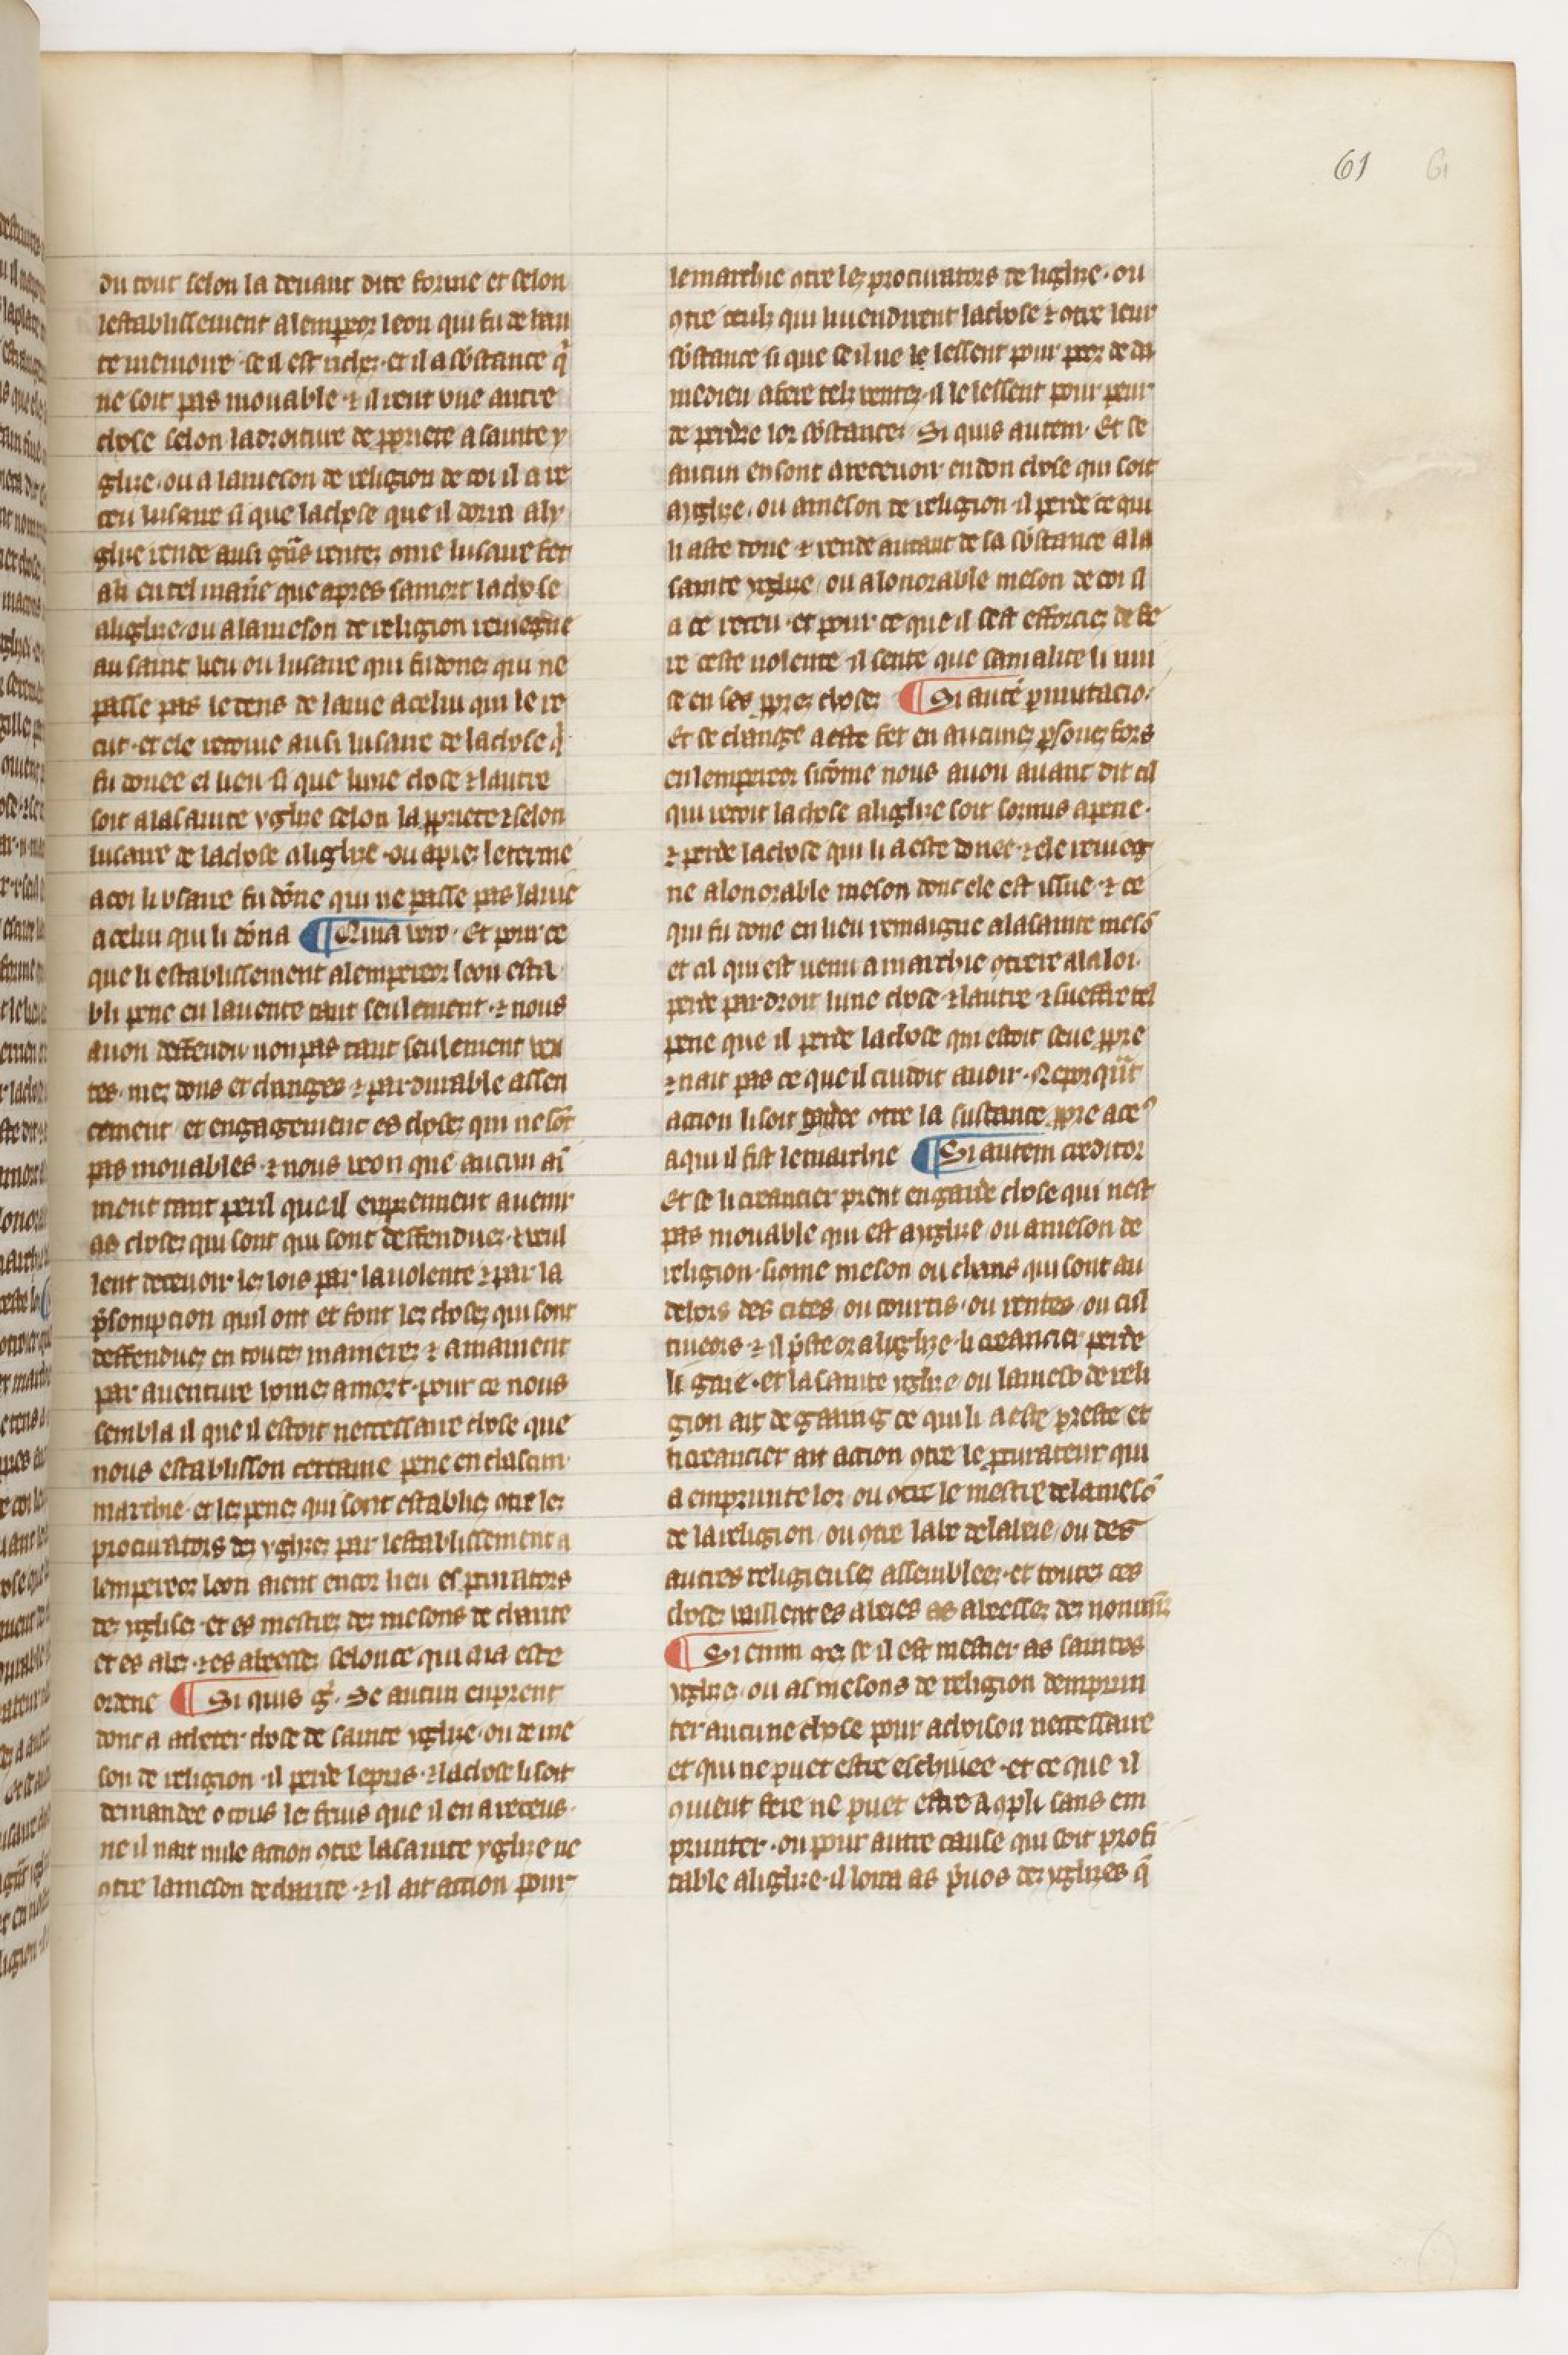 61 61
du tout selon la deuant dite forme et selon
lestablissement a lemperor leon qui fu de hau
te memoire · se il est riches · et il a sustance q̄
ne soit pas mouable · ⁊ il rent vne autre
chose selon la droiture de ꝓpriete a sainte y
glise · ou a la meson de religion de coi il a re
ceu lusaire si que la chose que il dorra a ly
glise rende ausi gñs rentes ꝯme lusaire fet
ali en tel mañe que apres sa mort la chose
a liglise · ou a la meson de religion reuiegne
au saint lieu ou lusaire qui fu dones qui ne
passe pas le tens de la uie a celui qui le re
cut · et ele retorne ausi lusaire de la chose q̄
fu donee el lieu · si que lune chose ⁊ lautre
soit a la sainte yglise selon la ꝓpriete ⁊ selon
lusaire de la chose a liglise · ou apres le terme
a coi li vsaire fu dōne qui ne passe pas la uie
a celui qui li dōna ¶ Quia vero · Et pour ce
que li establissement a lempereor leon esta
bli pene en la uente tant seulement · ⁊ nous
auon deffendu non pas tant seulement ven
tes · mes dons et changes ⁊ pardurable assen
cement et engagement es choses qui ne sōt
pas mouables · ⁊ nous veon que aucun ai
ment tant peril que il emprennent a uenir
as choses qui sont qui sont deffendues · ⁊ veul
lent deceuoir les lois par la uolente ⁊ par la
p̄sompcion quil ont et font les choses qui sont
deffendues en toutes manieres ⁊ amainent
par auenture homes a mort · pour ce nous
sembla il que il estoit neccessaire chose que
nous establisson certaine pene en chascun
marchie · et les penes qui sont establies ꝯtre les
procurators des yglises par lestablissement a
lemperor leon aient encor lieu es ꝓcurators
des yglises · et es mestres des mesons de charite
et es abes · ⁊ es abesses selonc ce qui aia este
ordene ¶ Si quis g̊ · Se aucun enprent
dont a acheter chose de sainte yglise · ou de me
son de religion · il perde le pris · ⁊ la chose li soit
demandee o tous les fruis que il en a receus ·
ne il nait nule action ꝯtre la sainte yglise ne
ꝯtre la meson de charite · ⁊ il ait action pour
le marchie ꝯtre les procurators de liglise · ou
ꝯtre ceulz qui li uendirent la chose ⁊ ꝯtre leur
sōstance si que se il ne le lessent pour peor de da
medieu a fere telz uentes · il le lessent pour peur
de perdre lor sōstances Si quis autem · Et se
aucun en sont a receuoir en don chose qui soit
a yglise · ou a meson de religion · il perde ce qui
li a este done · ⁊ rende autant de sa sōstance a la
sainte yglise · ou a lonorable meson de coi il
a ce receu · et pour ce que il sest efforcies de fe
re ceste uolente · il sente que sa malice li nui
se en ses ꝓpres choses ¶ Si autē ꝑmutacio ·
Et se change a este fet en aucunes ꝑsones fors
en lempereor sicōme nous auon auant dit cil
qui recoit la chose a liglise soit sormis a pene ·
⁊ perde la chose qui li a este donee · ⁊ ele reuieg
ne a lonorable meson dont ele est issue · ⁊ ce
qui fu done en lieu remaigne a la sainte mesō
et cil qui est uenu a marchie ꝯtrere a la loi ·
perde par droit lune chose · ⁊ lautre · ⁊ sueffre tel
pene que il perde la chose qui estoit seue ꝓpre
⁊ nait pas ce que il cuidoit auoir · Neporqūt
action li soit gardee ꝯtre la sustance ꝓpre a ce⁹
a qui il fist le marchie ¶ Si autem creditor
Et se li creancier prent en garde chose qui nest
pas mouable qui est a yglise · ou a meson de
religion · si ꝯme meson ou chans qui sont au
dehors des cites · ou courtis · ou rentes · ou cul
tiueors · ⁊ il p̄ste or a liglise · li creancier perde
le gaie · et la sainte yglise ou la mesō de reli
gion ait de gaaing ce qui li a este preste et
li creancier ait action ꝯtre le ꝓcurateur qui
a emprunte lor · ou ꝯtre le mestre de la mesō
de la religion · ou ꝯtre labe de labeie · ou des
autres religieuses assemblees · et toutes ces
choses vaillent es abeies as abesses des nonnaīs
¶ Si enim ores se il est mestier as saintes
yglises · ou as mesons de religion demprun
ter aucune chose pour achoison neccessaire
et qui ne puet estre eschiuee · et ce que il
ꝯuient fere ne puet estre aꝯpli sans em
prunter · ou pour autre cause qui soit profi
table a liglise · il loira as p̄uos des yglises q̄